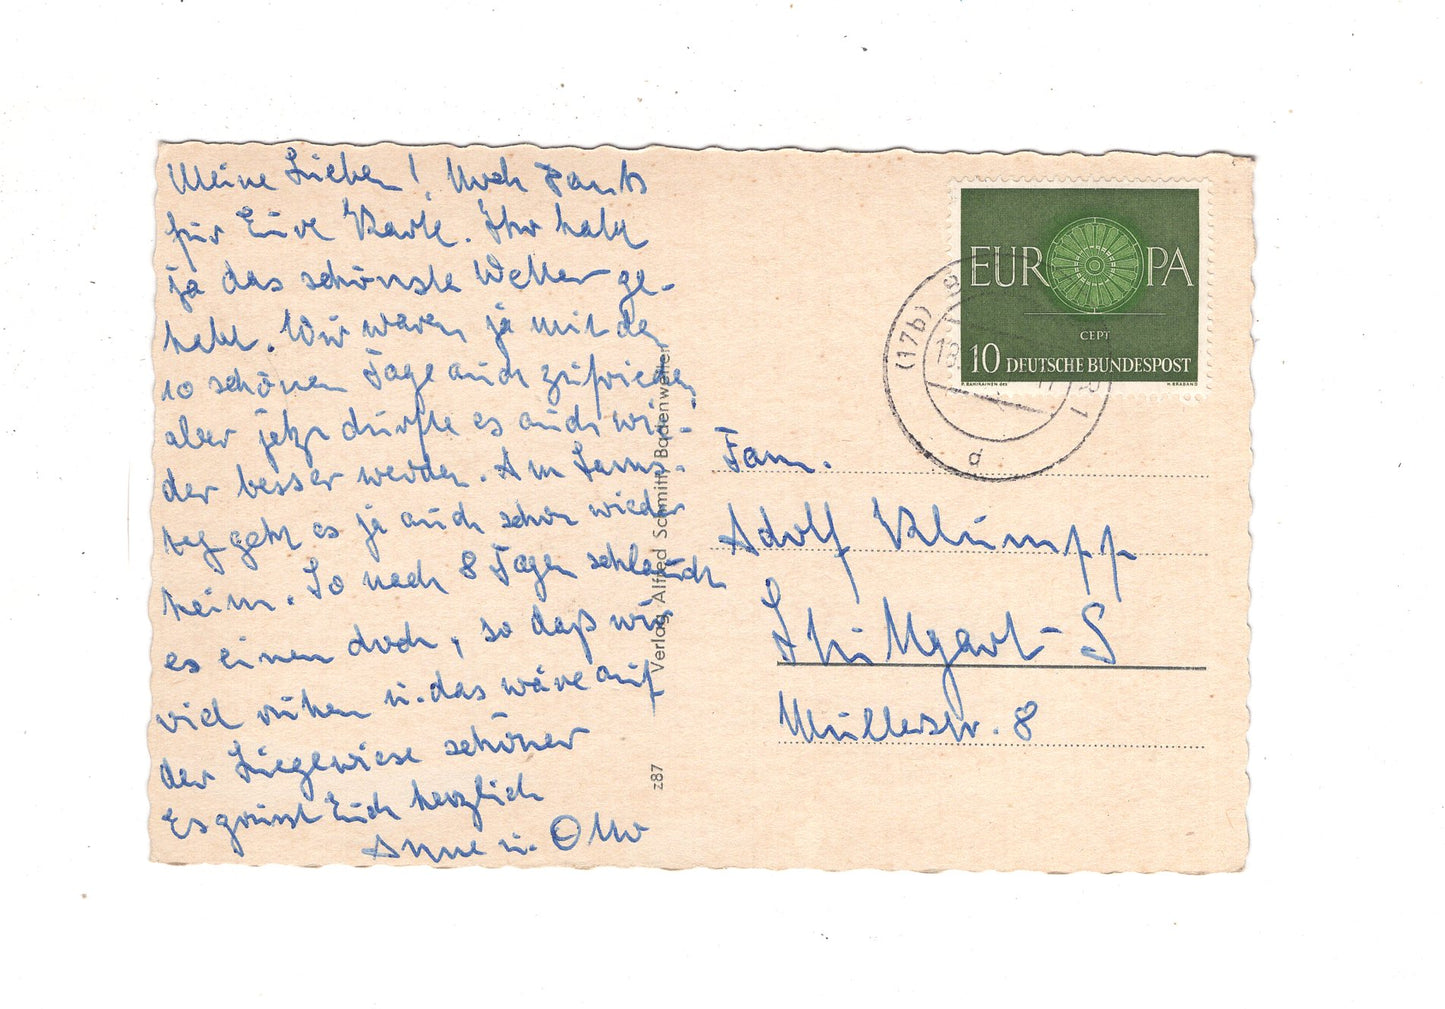 Meine Lieben! Noch Dank
für Eure Karte. Ihr habt
ja das schönste Wetter ge-
habt. Wir waren ja mit den
10 schönen Tage auch zufrieden
aber jetzt dürfte es auch wie-
der besser werden. Am Sams-
tag geht es ja auch schon wieder
heim. So nach 8 Tagen schlaucht
es einen doch, so daß wir
viel ruhen u. das wäre auf
der Liegewiese schöner
Es grüsst Euch herzlich
Anne u. Otto
Verlag Alfred Schmitt, Badenweiler
z87
EUROPA
CEPT
10 DEUTSCHE BUNDESPOST
P. RAHIKAINEN des
H. BRABAND
(17b)
d
Fam.
Adolf Klumpp
Stuttgart-S
Müllerstr. 8